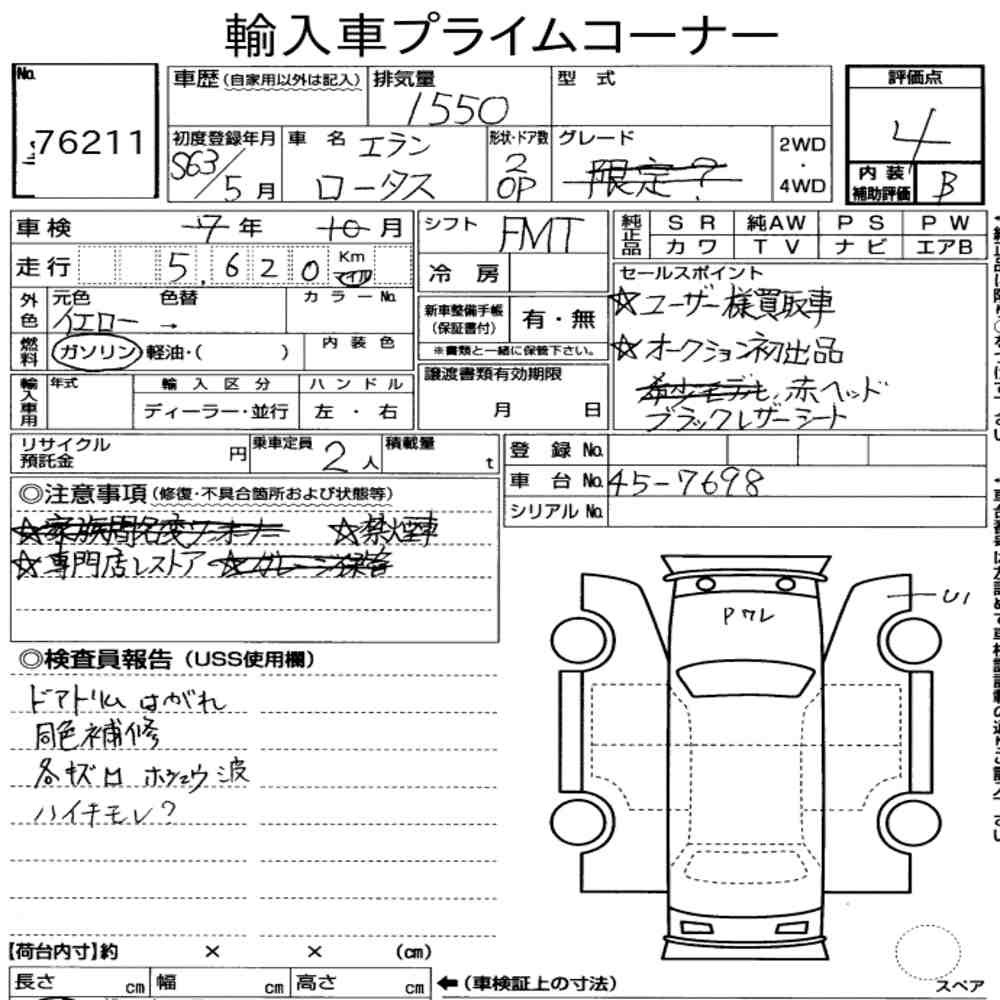 輸入車プライムコーナー
No.
76211
車歴(自家用以外は記入)
排気量
1550
型 式
評価点
4
初度登録年月
S63/5月
車 名
エラン
ロータス
形状・ドア数
2
OP
グレード
限定?
2WD
・
4WD
内 装
補助評価
B
車検
7年 10月
シフト
FMT
純正品
SR 純AW PS PW
カワ TV ナビ エアB
走行
5,620
Km
マイル
冷 房
セールスポイント
☆ユーザー様買取車
☆オークション初出品
希少モデル, 赤ヘッド
ブラックレザーシート
外色
元色
イエロー →
色替
カラーNo.
新車整備手帳
(保証書付)
有・無
※書類と一緒に保管下さい。
燃料
ガソリン 軽油・( )
内 装 色
譲渡書類有効期限
月 日
輸入車用
年式
輸 入 区 分
ディーラー・並行
ハ ン ド ル
左 ・ 右
リサイクル
預託金
円
乗車定員
2人
積載量
t
登 録 No.
車 台 No.
45-7698
シリアル No.
◎注意事項(修復・不具合箇所および状態等)
☆家族間名変ワンオーナー ☆禁煙車
☆専門店レストア ☆ガレージ保管
U1
Pワレ
◎検査員報告(USS使用欄)
ドアトリム はがれ
同色補修
各キズ凹 ホシュウ波
ハイキモレ?
【荷台内寸】約 × × (cm)
長さ cm
幅 cm
高さ cm
←(車検証上の寸法)
スペア